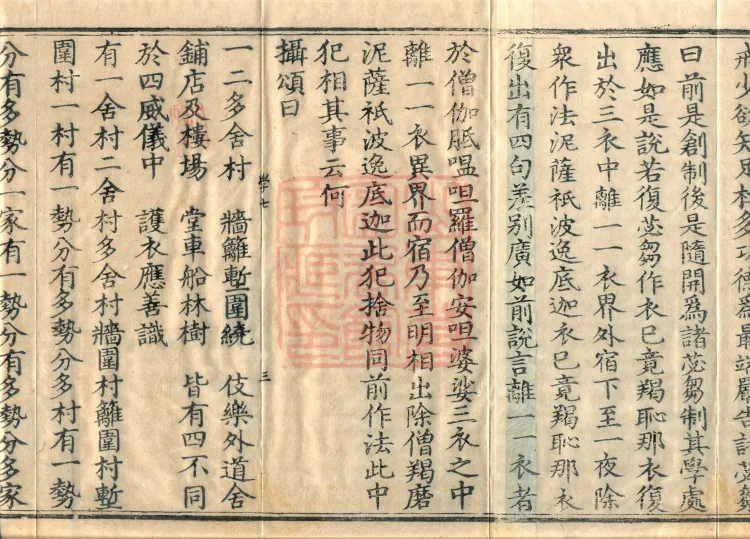 戒少欲知足杜多功德爲最端嚴告諸苾芻
曰前是創制後是隨開爲諸苾芻制其學處
應如是說若復苾芻作衣已竟羯恥那衣復
出於三衣中離一一衣界外宿下至一夜除
衆作法泥薩祇波逸底迦衣已竟羯恥那衣
復出有四句差别廣如前說言離一一衣者
於僧伽胝嗢呾羅僧伽安呾婆娑三衣之中
離一一衣異界而宿乃至明相出除僧羯磨
泥薩祇波逸底迦此犯捨物同前作法此中
犯相其事云何
攝頌曰
學七 三
一二多舍村 牆籬塹圍繞 伎樂外道舍
鋪店及樓場 堂車船林樹 皆有四不同
於四威儀中 護衣應善識
有一舍村二舍村多舍村牆圍村籬圍村塹
圍村一村有一勢分有多勢分多村有一勢
分有多勢分一家有一勢分有多勢分多家